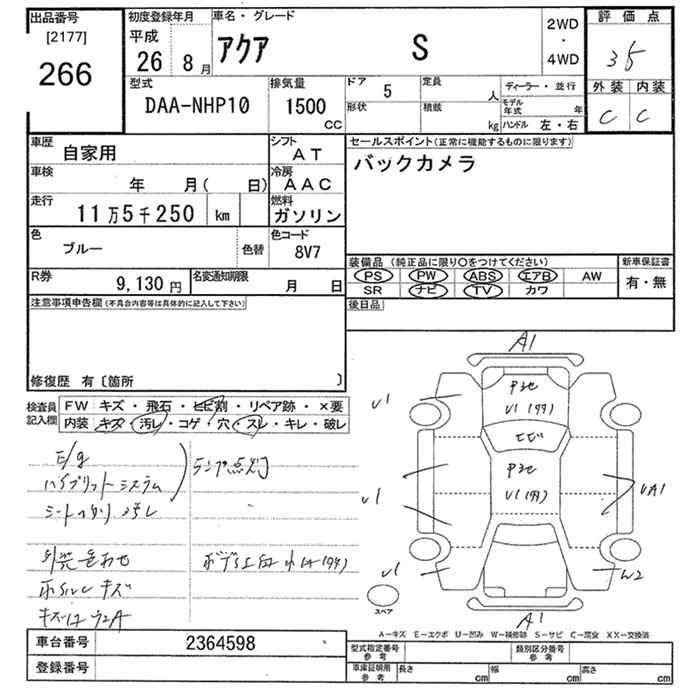 出品番号
[2177]
266
初度登録年月
平成
26 8 月
車名・グレード
アクア S
2WD
・
4WD
評価点
3 5
外装 内装
C C
型式
DAA-NHP10
排気量
1500
CC
ドア
5
定員
人
形状
積載
kg
ディーラー・並行
モデル年式
年
ハンドル 左・右
車歴
自家用
シフト
AT
車検
年 月( 日)
冷房
AAC
走行
11万5千250 km
燃料
ガソリン
色
ブルー
色替
色コード
8V7
R券
9,130 円
名変通知期限
月 日
セールスポイント(正常に機能するものに限ります)
バックカメラ
装備品 (純正品に限り○をつけてください)
PS PW ABS エアB AW
SR ナビ TV カワ
新車保証書
有・無
後日品
注意事項申告欄(不具合内容等は具体的に記入して下さい)
修復歴 有〔箇所 〕
検査員
記入欄
FW キズ・飛石・ヒビ割・リペア跡・×要
内装 キズ・汚レ・コゲ・穴・スレ・キレ・破レ
E/g
ハイブリットシステム
ランプ点灯
汚レ
キズ
A1
U1
U1
U1
ヒビ
UA1
W2
A1
スペア
A－キズ E－エクボ U－凹み W－補修跡 S－サビ C－腐食 XX－交換済
車台番号
2364598
登録番号
型式指定番号
参考
類別区分番号
参考
車庫証明用
参考
長さ cm
幅 cm
高さ cm